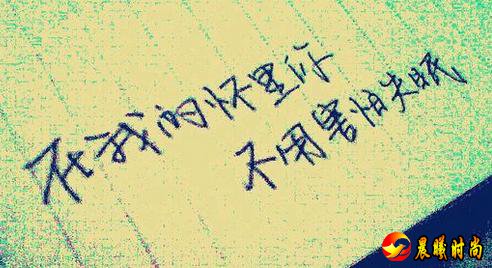 在我的怀里你
不用害怕失眠
晨曦时尚